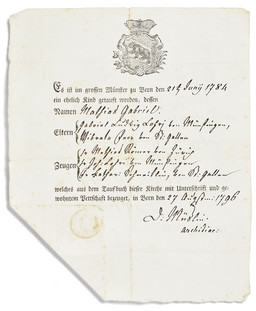 Es ist im grossen Münster zu Bern den 21t. Junÿ 1784
ein ehelich Kind getauft worden, dessen
Namen Mathias Gabriel.
Eltern Gabriel Ludwig von Münsingen,
von St. Gallen
Zeugen Mathias von Zürich
von Münsingen
von St. Gallen
welches aus dem Taufbuch dieser Kirche mit Unterschrift und ge-
wohntem Pettschaft bezeuget, in Bern den 27 Augsten 1796
D. Müslin
archidiac: